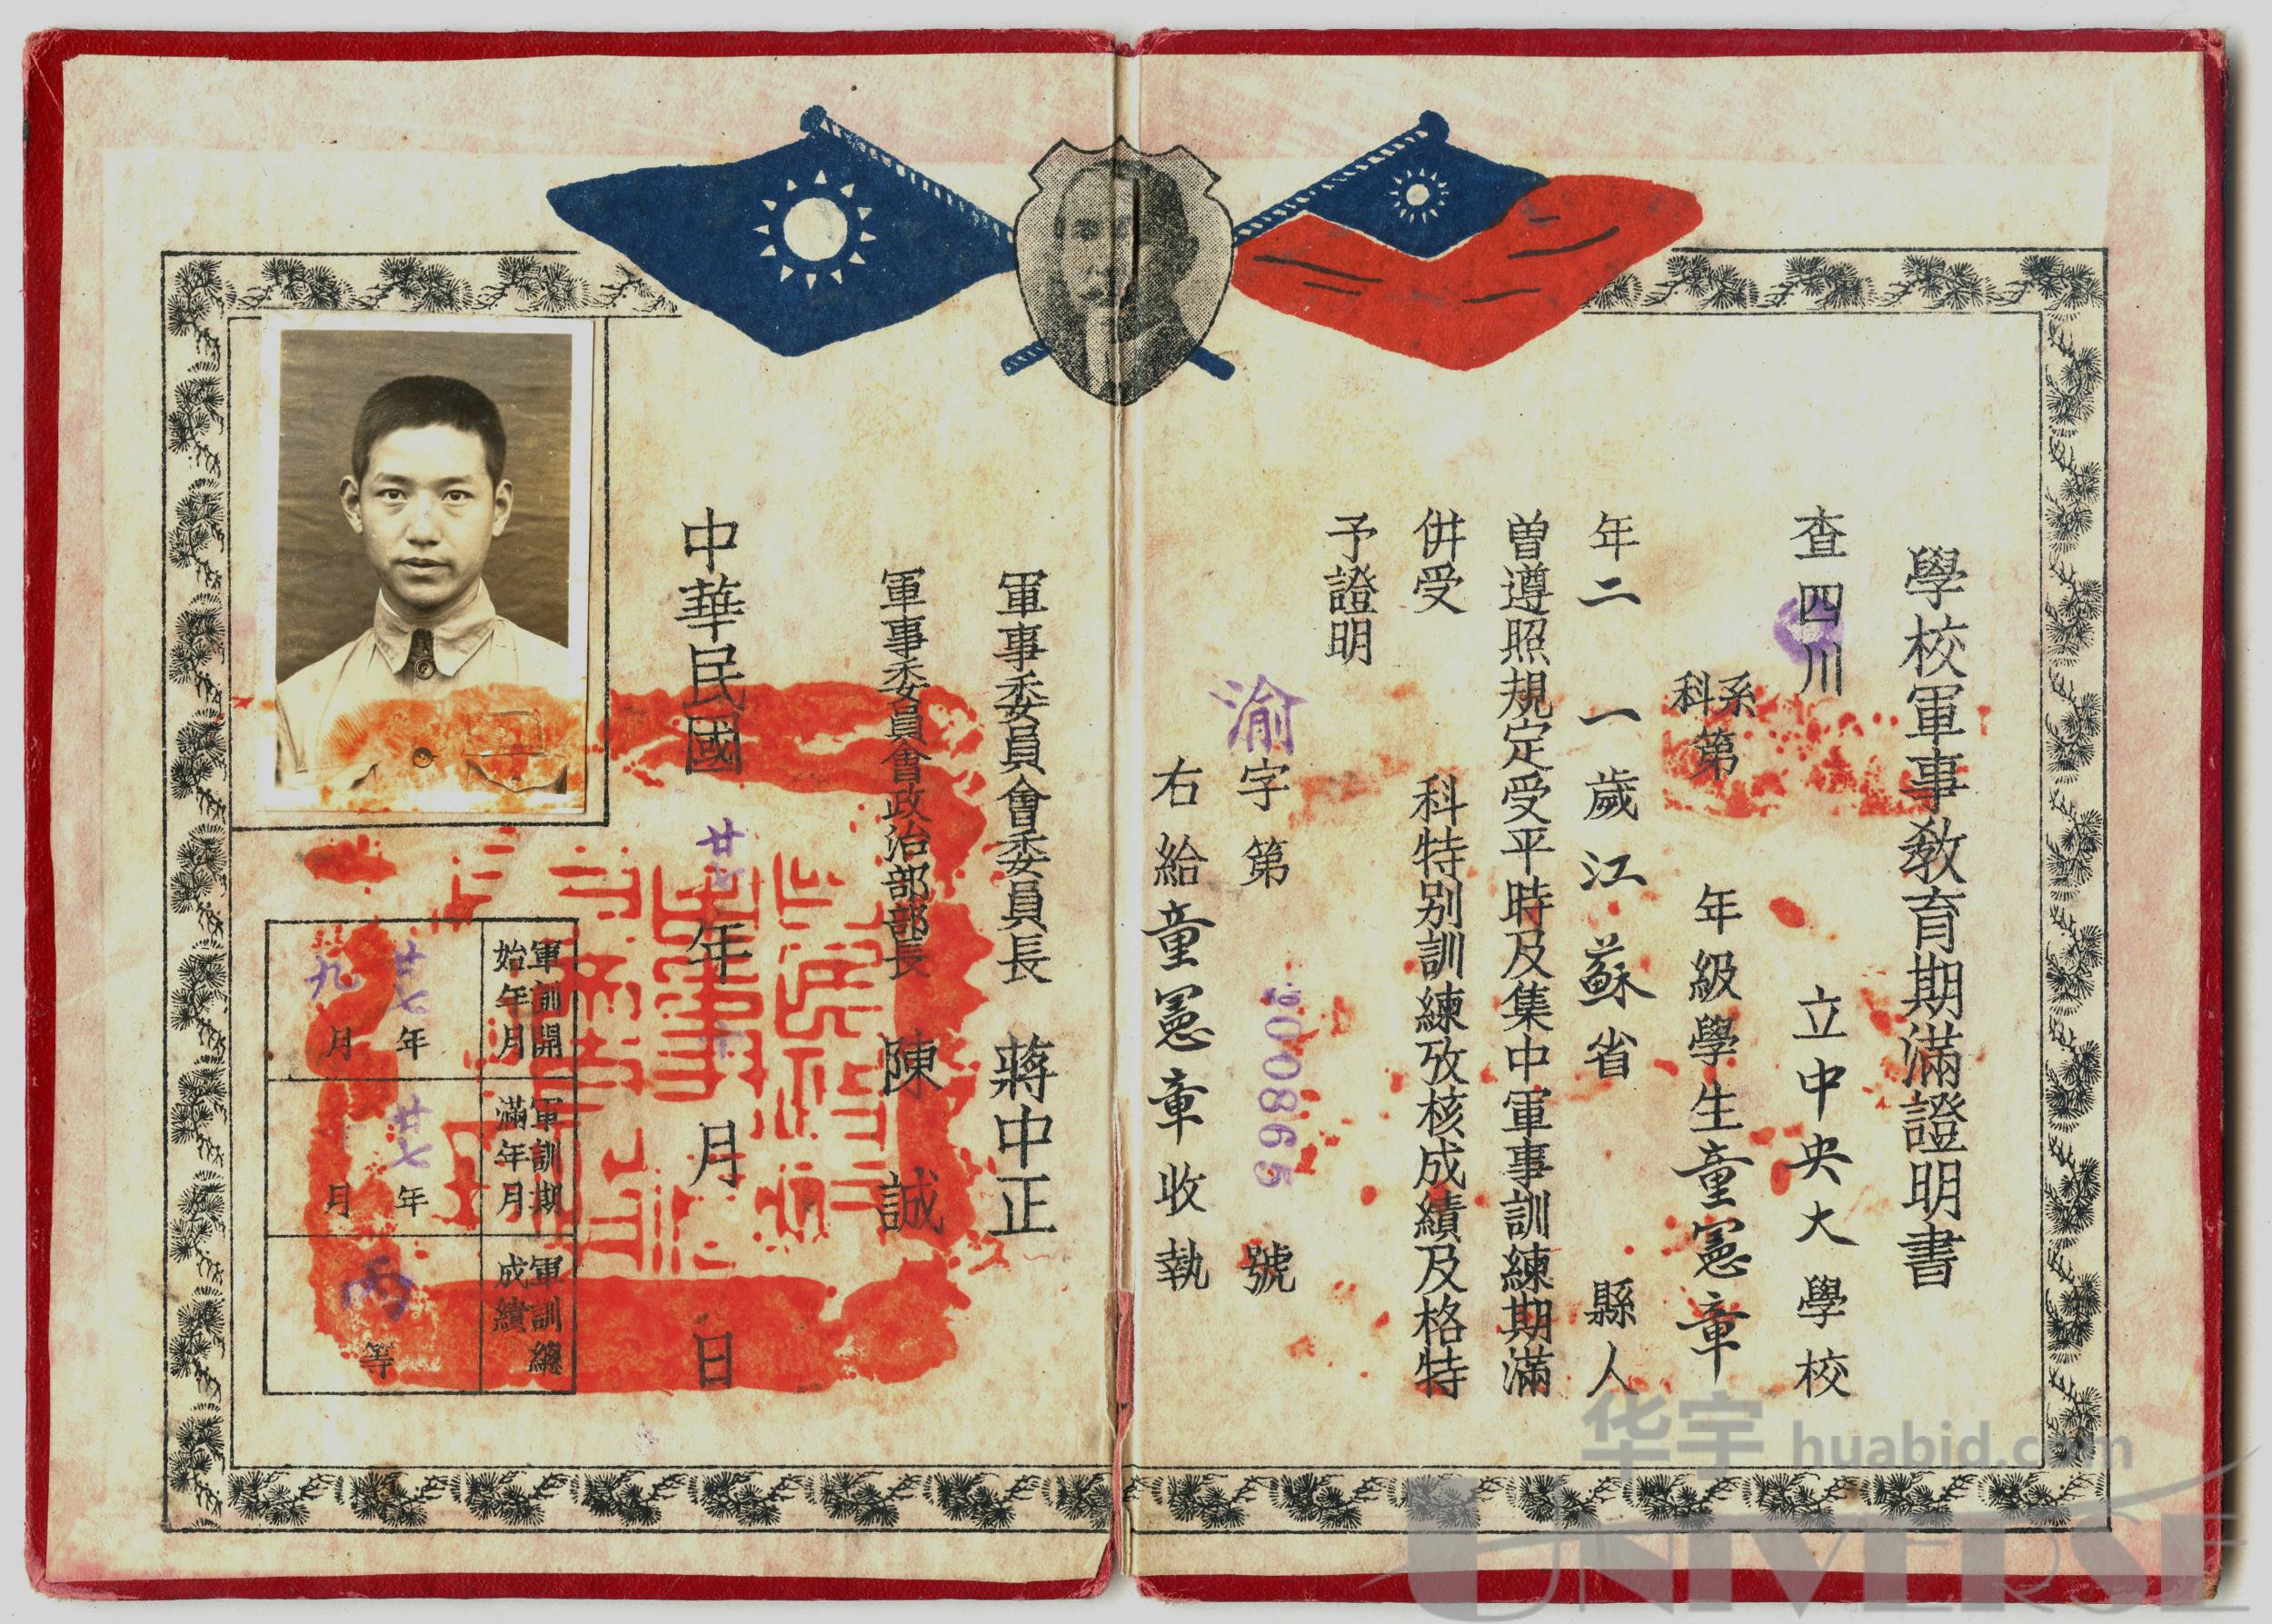 學校軍事教育期滿證明書
查四川 立中央大學校
系科第 年級學生童憲章
年二一歲江蘇省 縣人
曾遵照規定受平時及集中軍事訓練期滿
併受 科特別訓練攷核成績及格特
予證明
渝字第 號
右給童憲章收執
軍事委員會委員長 蔣中正
軍事委員會政治部部長 陳誠
中華民國 年 月 日
軍訓開始年月
廿七年
九月
軍訓期滿年月
廿七年
月
軍訓總成績
丙等
华宇 huabid.com
UNIVERSE